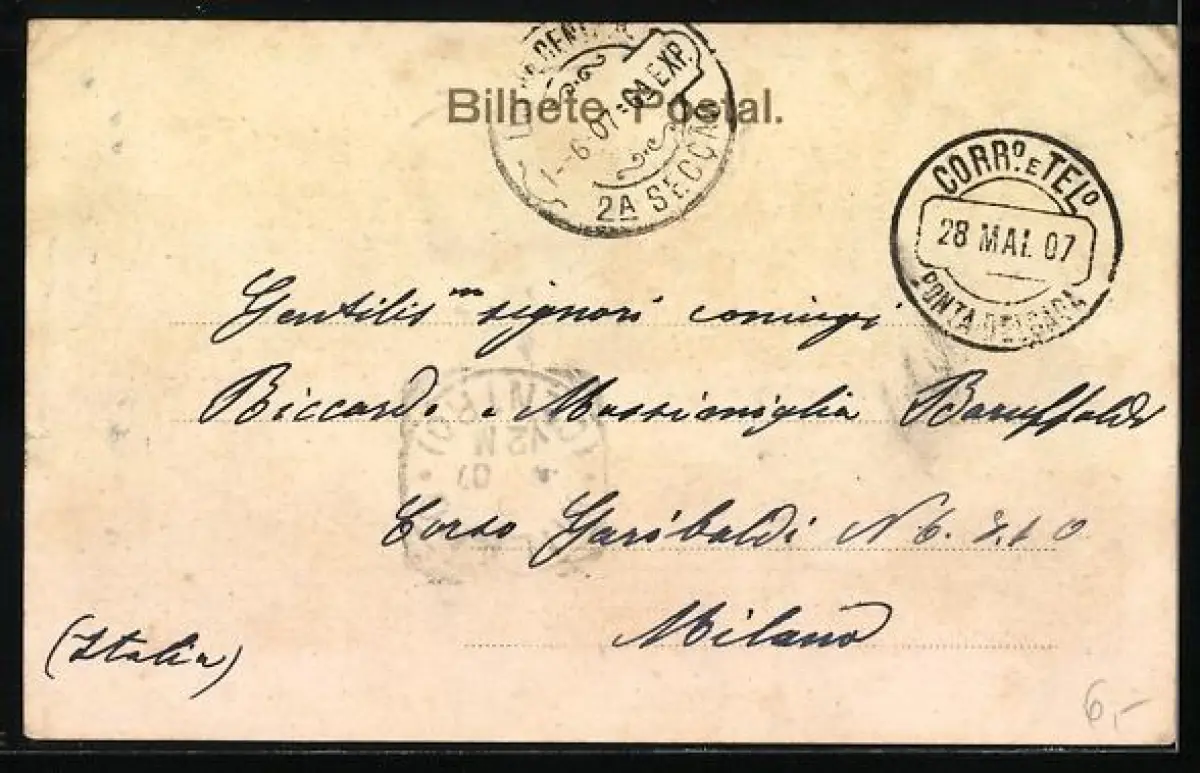 Bilhete Postal.
1-6-07 6A EXP.
2A SECÇÃO
CORRº E TELº
28 MAI. 07
PONTA DELGADA
Gentilis mi signori coniugi
Riccardo e Massimiglia Baruffaldi
Corso Garibaldi N
Milano
(Italia)
6,-